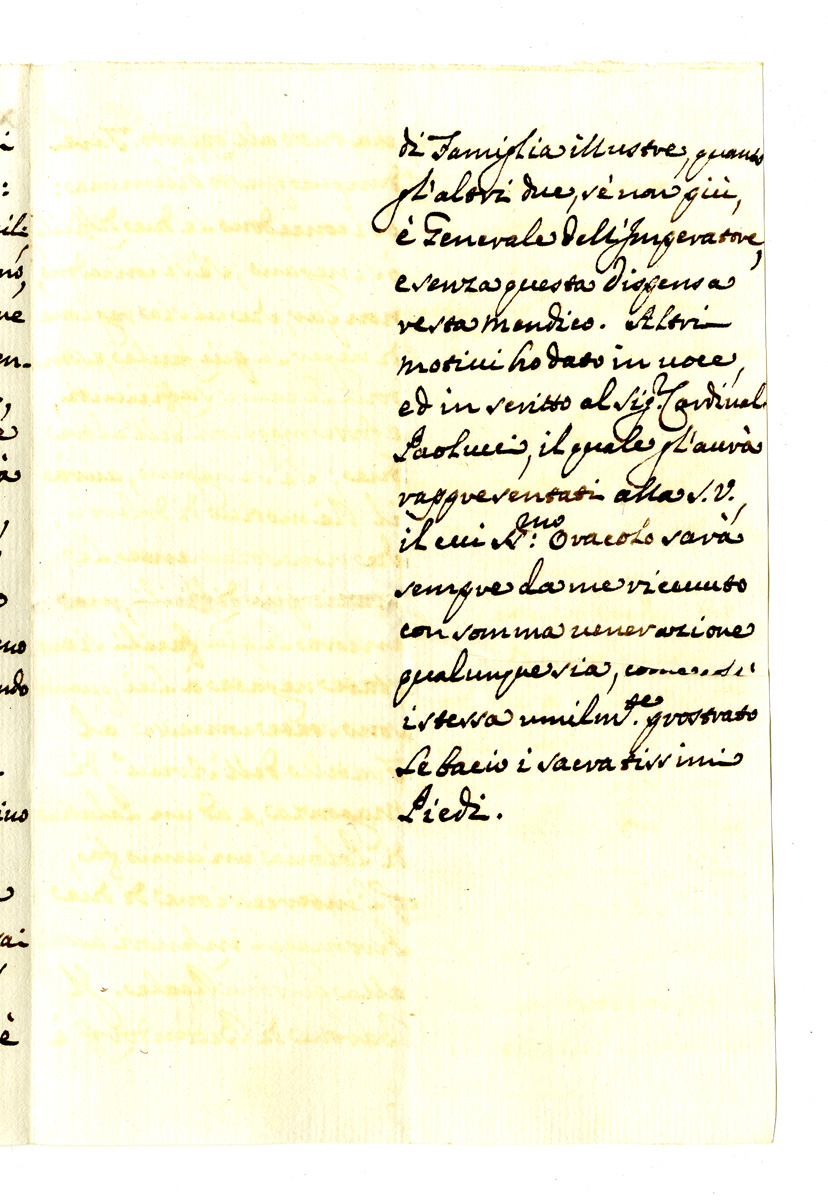 di Famiglia illustre, quanto
gl'altri due, sè non più,
è Generale dell'Imperatore,
e senza questa dispensa
resta mendico. Altri
motivi ho dato in voce,
ed in scritto al Sig.r Cardinal
Paolucci, il quale gl'aurà
rappresentati alla S.V.,
il cui S.mo Oracolo sarà
sempre da me riceuuto
con somma uenerazione
qualunque sia, come
istessa umilm.te prostrato
Le bacio i sacratissimi
Piedi.